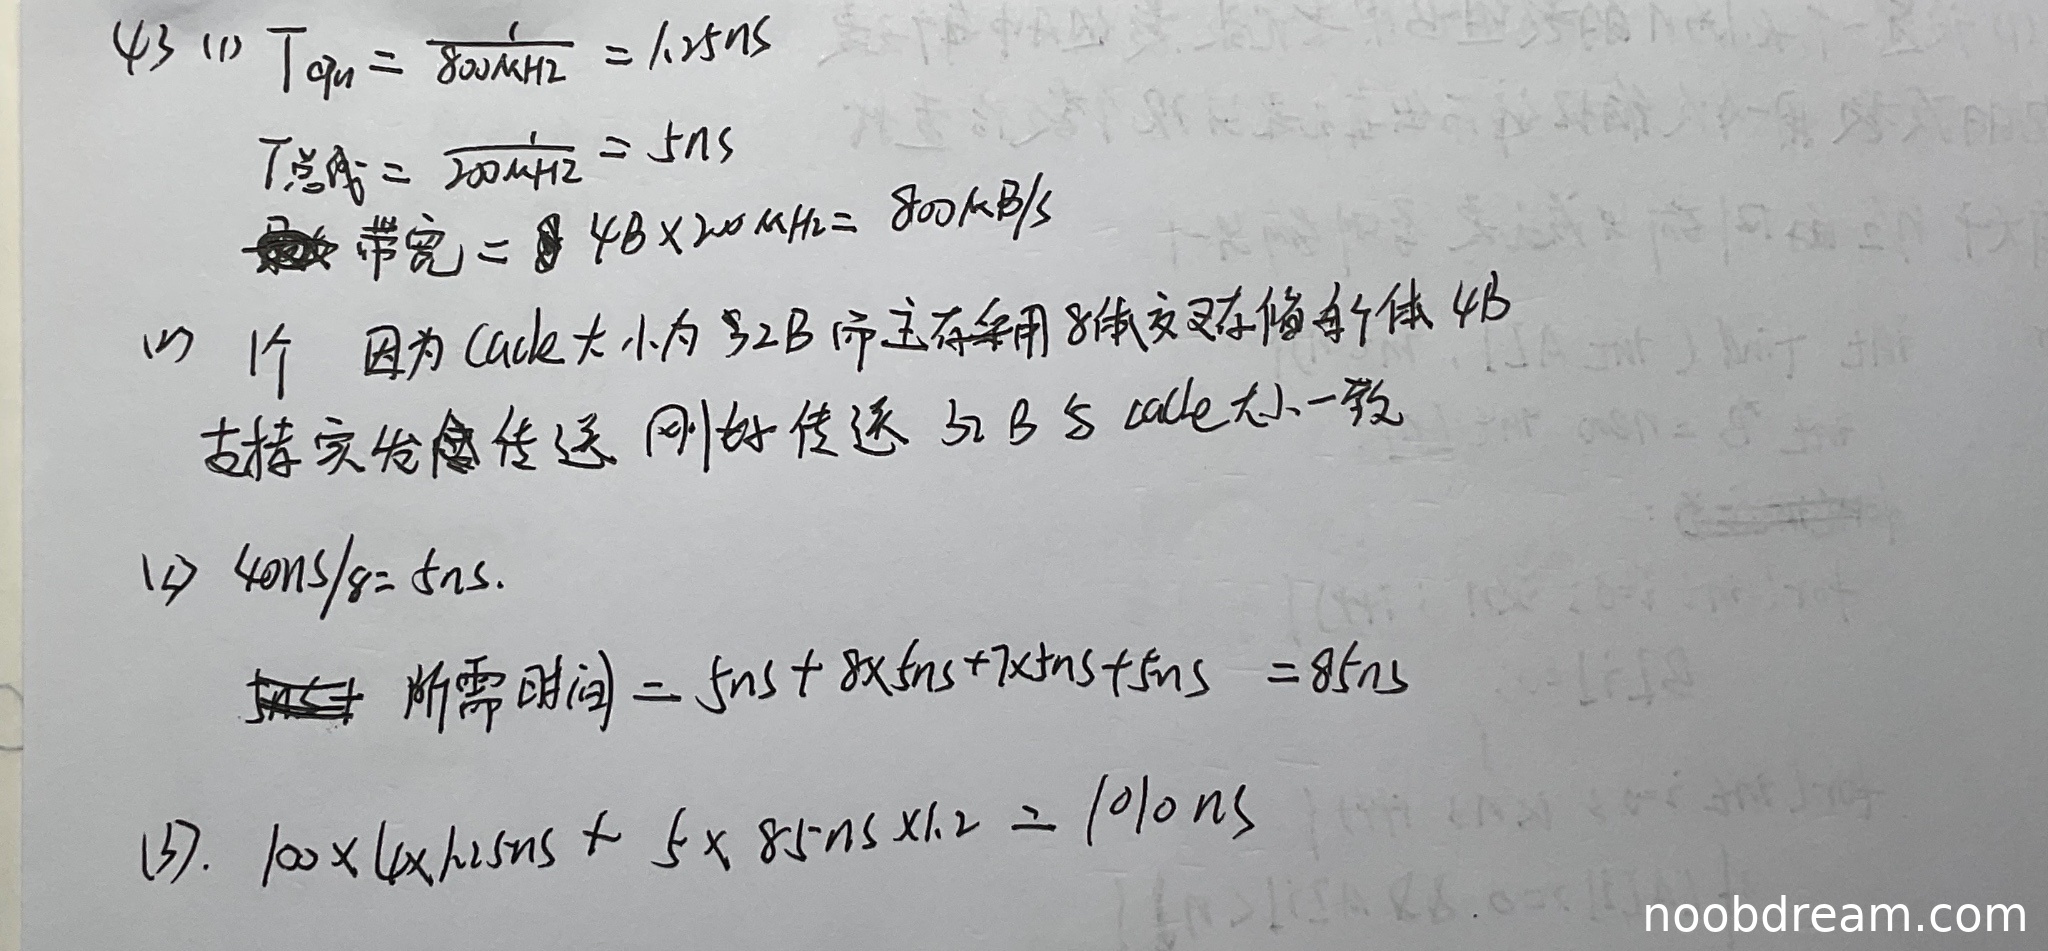 43 (1) Tcpu = 1/800MHz = 1.25ns
T总线 = 1/200MHz = 5ns
带宽 = 4B×200MHz = 800MB/s
(2) 1个 因为cache大小为32B而主存采用8体交叉存储每个体4B
支持突发传送 刚好传送32B与cache大小一致
(3) 40ns/8=5ns.
所需时间 = 5ns + 8×5ns+7×5ns+5ns =85ns
100×4×1.25ns + 5×85ns×1.2 = 1010ns
noobdream.com